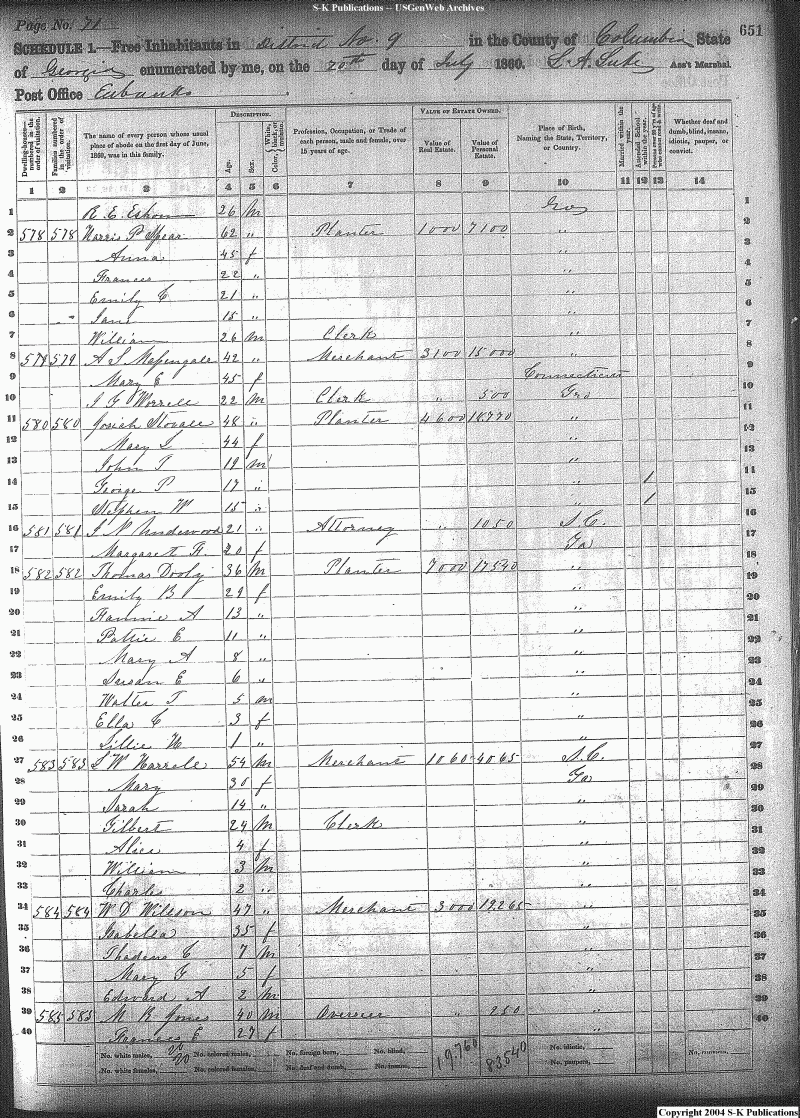 S-K Publications -- USGenWeb Archives
Page No. 71
651
SCHEDULE 1.—Free Inhabitants in District No. 9 in the County of Columbia State
of Georgia enumerated by me, on the 20th day of July 1860. Ass't Marshal.
Post Office Eubanks
Dwelling-houses—numbered in the order of visitation.
Families numbered in the order of visitation.
The name of every person whose usual place of abode on the first day of June, 1860, was in this family.
DESCRIPTION.
Age.
Sex.
Color, White, black, or mulatto.
Profession, Occupation, or Trade of each person, male and female, over 15 years of age.
VALUE OF ESTATE OWNED.
Value of Real Estate.
Value of Personal Estate.
Place of Birth, Naming the State, Territory, or Country.
Married within the year.
Attended School within the year.
Persons over 20 y'rs of age who cannot read & write.
Whether deaf and dumb, blind, insane, idiotic, pauper, or convict.
1 2 3 4 5 6 7 8 9 10 11 12 13 14
1 R. E. 26 m Geo 1
2 578 578 Harris P Spear 62 " Planter 1000 7100 " 2
3 Anna 45 f " 3
4 Frances 22 " " 4
5 Emily C 21 " " 5
6 Jane 15 " " 6
7 William 26 m Clerk " 7
8 579 579 A S 42 " Merchant 3100 15000 " 8
9 Mary E 45 f Connecticut 9
10 J G Worrell 22 m Clerk " 500 Geo 10
11 580 580 Josiah Stovall 48 " Planter 4600 18770 " 11
12 Mary L 44 f " 12
13 John T 19 m " 13
14 George P 17 " " 1
15 Stephen W 15 " " 1
16 581 581 J N Underwood 21 " Attorney " 1050 S.C.
17 Margarett A 20 f Ga
18 582 582 Thomas Dooly 36 m Planter 7000 17540 "
19 Emily B 29 f "
20 Fannie A 13 " "
21 Pattie E 11 " "
22 Mary A 8 " "
23 Susan E 6 " "
24 Walter T 5 m "
25 Ella C 3 f "
26 Lillie H 1 " "
27 583 583 S W Harrell 54 m Merchant 1060 4065 S.C.
28 Mary 30 f Ga
29 Sarah 14 " "
30 Gilbert 24 m Clerk "
31 Alice 4 f "
32 William 3 m "
33 Charles 2 " "
34 584 584 W D Willson 47 " Merchant 3000 19265 "
35 Isabella 35 f "
36 Thadeus C 7 m "
37 Mary G 5 f "
38 Edward A 2 m "
39 585 585 M R Jones 40 m Overseer " 250 "
40 Frances E 27 f "
No. white males, 20 No. colored males, No. foreign born, No. blind, 19,760 83540 No. idiotic, No. convicts,
No. white females, 20 No. colored females, No. deaf and dumb, No. insane, No. paupers,
Copyright 2004 S-K Publications